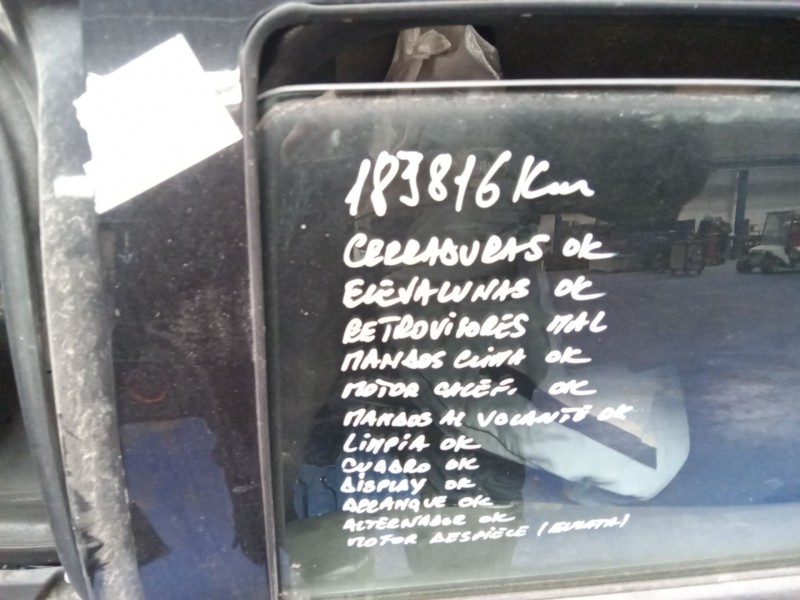 183816 Km
CERRADURAS OK
ELEVALUNAS OK
RETROVISORES MAL
MANDOS CLIMA OK
MOTOR CALEF. OK
MANDOS AL VOLANTE OK
LIMPIA OK
CUADRO OK
DISPLAY OK
ARRANQUE OK
ALTERNADOR OK
MOTOR DESPIECE (CULATA)